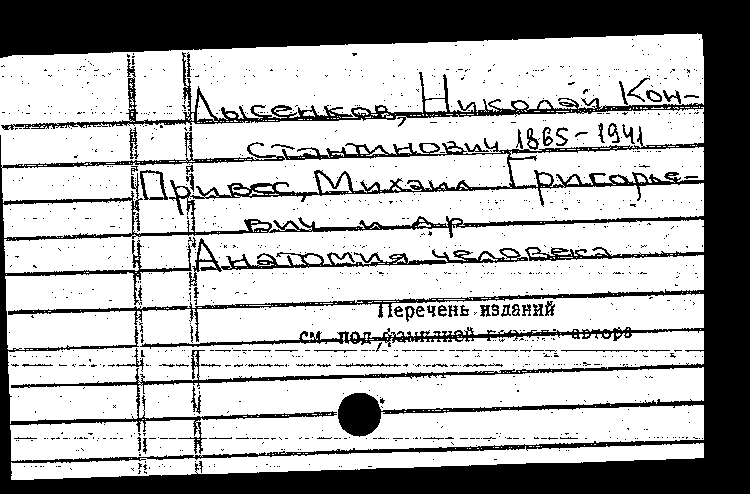 Лысенков, Николай Кон-
стантинович 1865-1941
Привес, Михаил Григорье-
вич и др
Анатомия человека
Перечень изданий
см. под фамилией первого автора